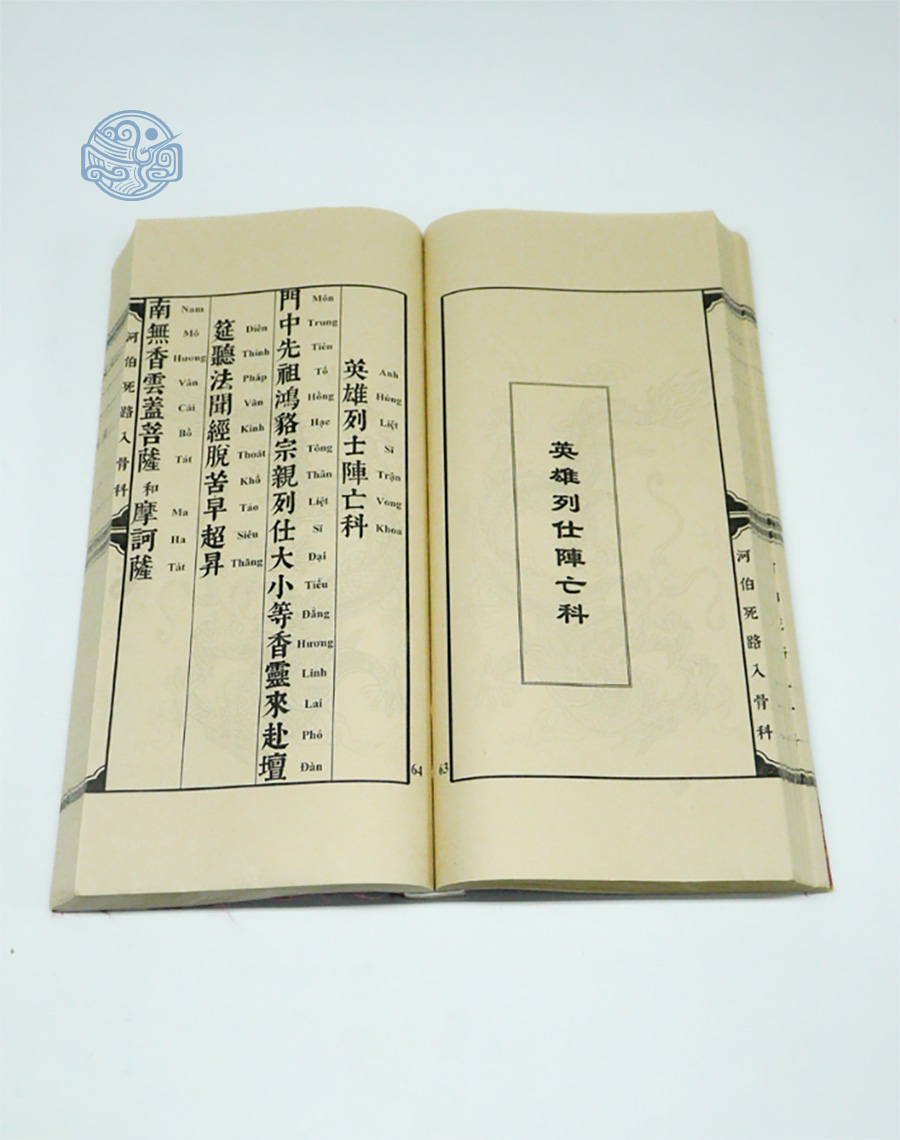 英雄列仕陣亡科
河伯死路入骨科
63
英雄列士陣亡科
Anh Hùng Liệt Sĩ Trận Vong Khoa
門中先祖鴻貉宗親列仕大小等香靈來赴壇
Môn Trung Tiên Tổ Hồng Hạc Tông Thân Liệt Sĩ Đại Tiểu Đẳng Hương Linh Lai Phó Đàn
筵聽法聞經脫苦早超昇
Diên Thính Pháp Văn Kinh Thoát Khổ Táo Siêu Thăng
南無香雲蓋菩薩和摩訶薩
Nam Mô Hương Vân Cái Bồ Tát Ma Ha Tát
河伯死路入骨科
64